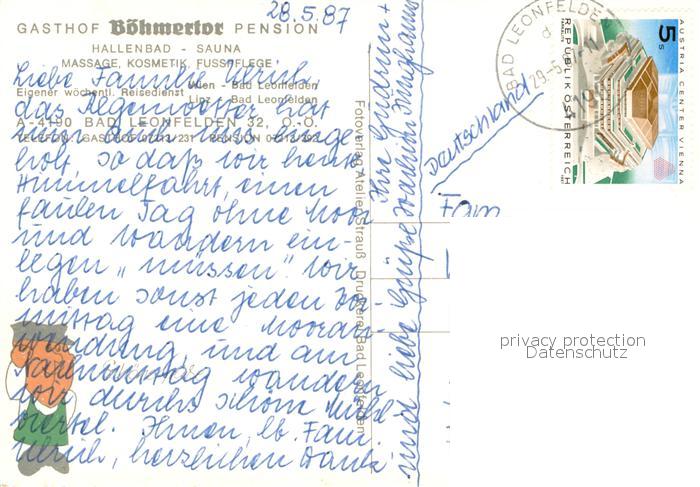 28.5.87
GASTHOF Böhmertor PENSION
HALLENBAD - SAUNA
MASSAGE, KOSMETIK, FUSSPFLEGE
Eigener wöchentl. Reisedienst Wien - Bad Leonfelden
Linz - Bad Leonfelden
A-4190 BAD LEONFELDEN 32, O.Ö.
Liebe Familie Ulrich,
das Regenwetter hat
uns
holt, so daß wir heute
Himmelfahrt, einen
faulen Tag ohne Moor
und wandern ein-
legen "müssen". Wir
haben sonst jeden Vor-
mittag eine Mooran-
wendung, und am
Nachmittag wandern
wir durchs schöne Mühl-
viertel. Ihnen, lb. Fam.
Ulrich, herzlichen Dank
und liebe Grüße
Ihre Gudrun +
Fotoverlag Atelier Strauß Druckerei Bad Leonfelden
Deutschland
Fam
BAD LEONFELDEN
29-5.
4190
5 S
REPUBLIK ÖSTERREICH
AUSTRIA CENTER VIENNA
privacy protection
Datenschutz